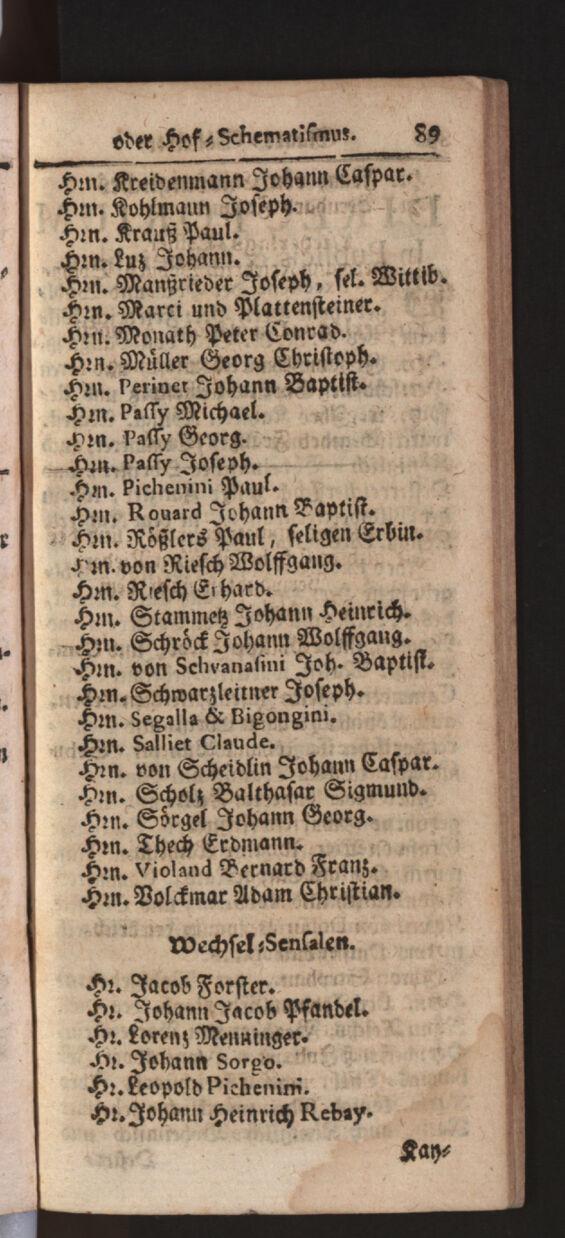 oder Hof-Schematismus. 89
Hrn. Kreidenmann Johann Caspar.
Hrn. Kohlmann Joseph.
Hrn. Krauß Paul.
Hrn. Luz Johann.
Hrn. Manßrieder Joseph, sel. Wittib.
Hrn. Marci und Plattensteiner.
Hrn. Monath Peter Conrad.
Hrn. Müller Georg Christoph.
Hrn. Perinet Johann Baptist.
Hrn. Passy Michael.
Hrn. Passy Georg.
Hrn. Passy Joseph.
Hrn. Pichenini Paul.
Hrn. Rouard Johann Baptist.
Hrn. Rößlers Paul, seligen Erbin.
Hrn. von Riesch Wolffgang.
Hrn. Riesch Erhard.
Hrn. Stammetz Johann Heinrich.
Hrn. Schröck Johann Wolffgang.
Hrn. von Schvanasini Joh. Baptist.
Hrn. Schwarzleitner Joseph.
Hrn. Segalla & Bigongini.
Hrn. Salliet Claude.
Hrn. von Scheidlin Johann Caspar.
Hrn. Scholz Balthasar Sigmund.
Hrn. Sörgel Johann Georg.
Hrn. Thech Erdmann.
Hrn. Violand Bernard Franz.
Hrn. Volckmar Adam Christian.
Wechsel-Sensalen.
Hr. Jacob Forster.
Hr. Johann Jacob Pfandel.
Hr. Lorenz Menninger.
Hr. Johann Sorgo.
Hr. Leopold Pichenini.
Hr. Johann Heinrich Rebay.
Kay-